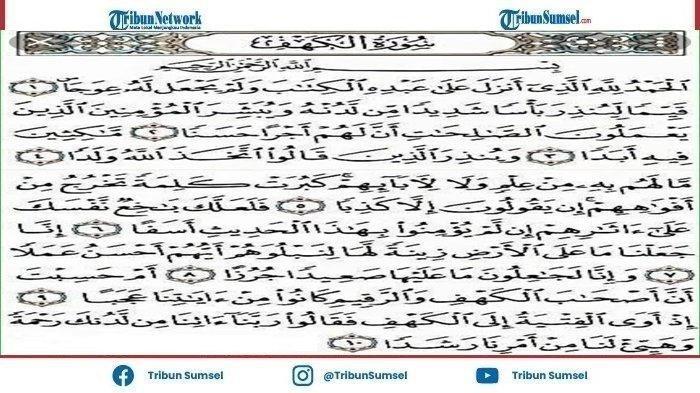 Tribun Network
Mata Lokal Menjangkau Indonesia
TribunSumsel.com
سُورَةُ الْكَهْفِ
بِسْمِ اللَّهِ الرَّحْمَٰنِ الرَّحِيمِ
الْحَمْدُ لِلَّهِ الَّذِي أَنزَلَ عَلَىٰ عَبْدِهِ الْكِتَابَ وَلَمْ يَجْعَل لَّهُ عِوَجًا ۜ ١
قَيِّمًا لِّيُنذِرَ بَأْسًا شَدِيدًا مِّن لَّدُنْهُ وَيُبَشِّرَ الْمُؤْمِنِينَ الَّذِينَ
يَعْمَلُونَ الصَّالِحَاتِ أَنَّ لَهُمْ أَجْرًا حَسَنًا ٢ مَّاكِثِينَ
فِيهِ أَبَدًا ٣ وَيُنذِرَ الَّذِينَ قَالُوا اتَّخَذَ اللَّهُ وَلَدًا ٤
مَّا لَهُم بِهِ مِنْ عِلْمٍ وَلَا لِآبَائِهِمْ ۚ كَبُرَتْ كَلِمَةً تَخْرُجُ مِنْ
أَفْوَاهِهِمْ ۚ إِن يَقُولُونَ إِلَّا كَذِبًا ٥ فَلَعَلَّكَ بَاخِعٌ نَّفْسَكَ
عَلَىٰ آثَارِهِمْ إِن لَّمْ يُؤْمِنُوا بِهَٰذَا الْحَدِيثِ أَسَفًا ٦ إِنَّا
جَعَلْنَا مَا عَلَى الْأَرْضِ زِينَةً لَّهَا لِنَبْلُوَهُمْ أَيُّهُمْ أَحْسَنُ عَمَلًا
٧ وَإِنَّا لَجَاعِلُونَ مَا عَلَيْهَا صَعِيدًا جُرُزًا ٨ أَمْ حَسِبْتَ
أَنَّ أَصْحَابَ الْكَهْفِ وَالرَّقِيمِ كَانُوا مِنْ آيَاتِنَا عَجَبًا ٩
إِذْ أَوَى الْفِتْيَةُ إِلَى الْكَهْفِ فَقَالُوا رَبَّنَا آتِنَا مِن لَّدُنكَ رَحْمَةً
وَهَيِّئْ لَنَا مِنْ أَمْرِنَا رَشَدًا ١٠
Tribun Sumsel
@TribunSumsel
Tribun Sumsel